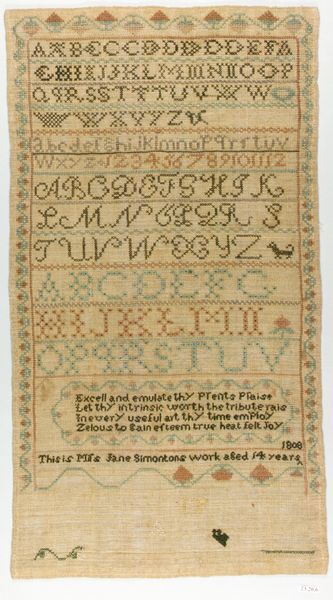 A A B C C D D D D E F A
G H I I J K L M I I N I I O O P
O P Q R S S T T U V W W O
W W X V Y Z
a b c d e f g h i j k l m n o p q r s t u v
w x y z 1 2 3 4 5 6 7 8 9 10 11 12
A B C D E F G H I K
L M N O P Q R S
T U V W X Y Z
A B C D E F G
H I J K L M
O P Q R S T U V
Excell and emulate thy Prents Prais
Let thy intrinsic worth the tribute rais
in every useful art thy time employ
Zelous to Gain esteem true heat felt Joy
1808
This is Miss Jane Simontons work aged 14 years